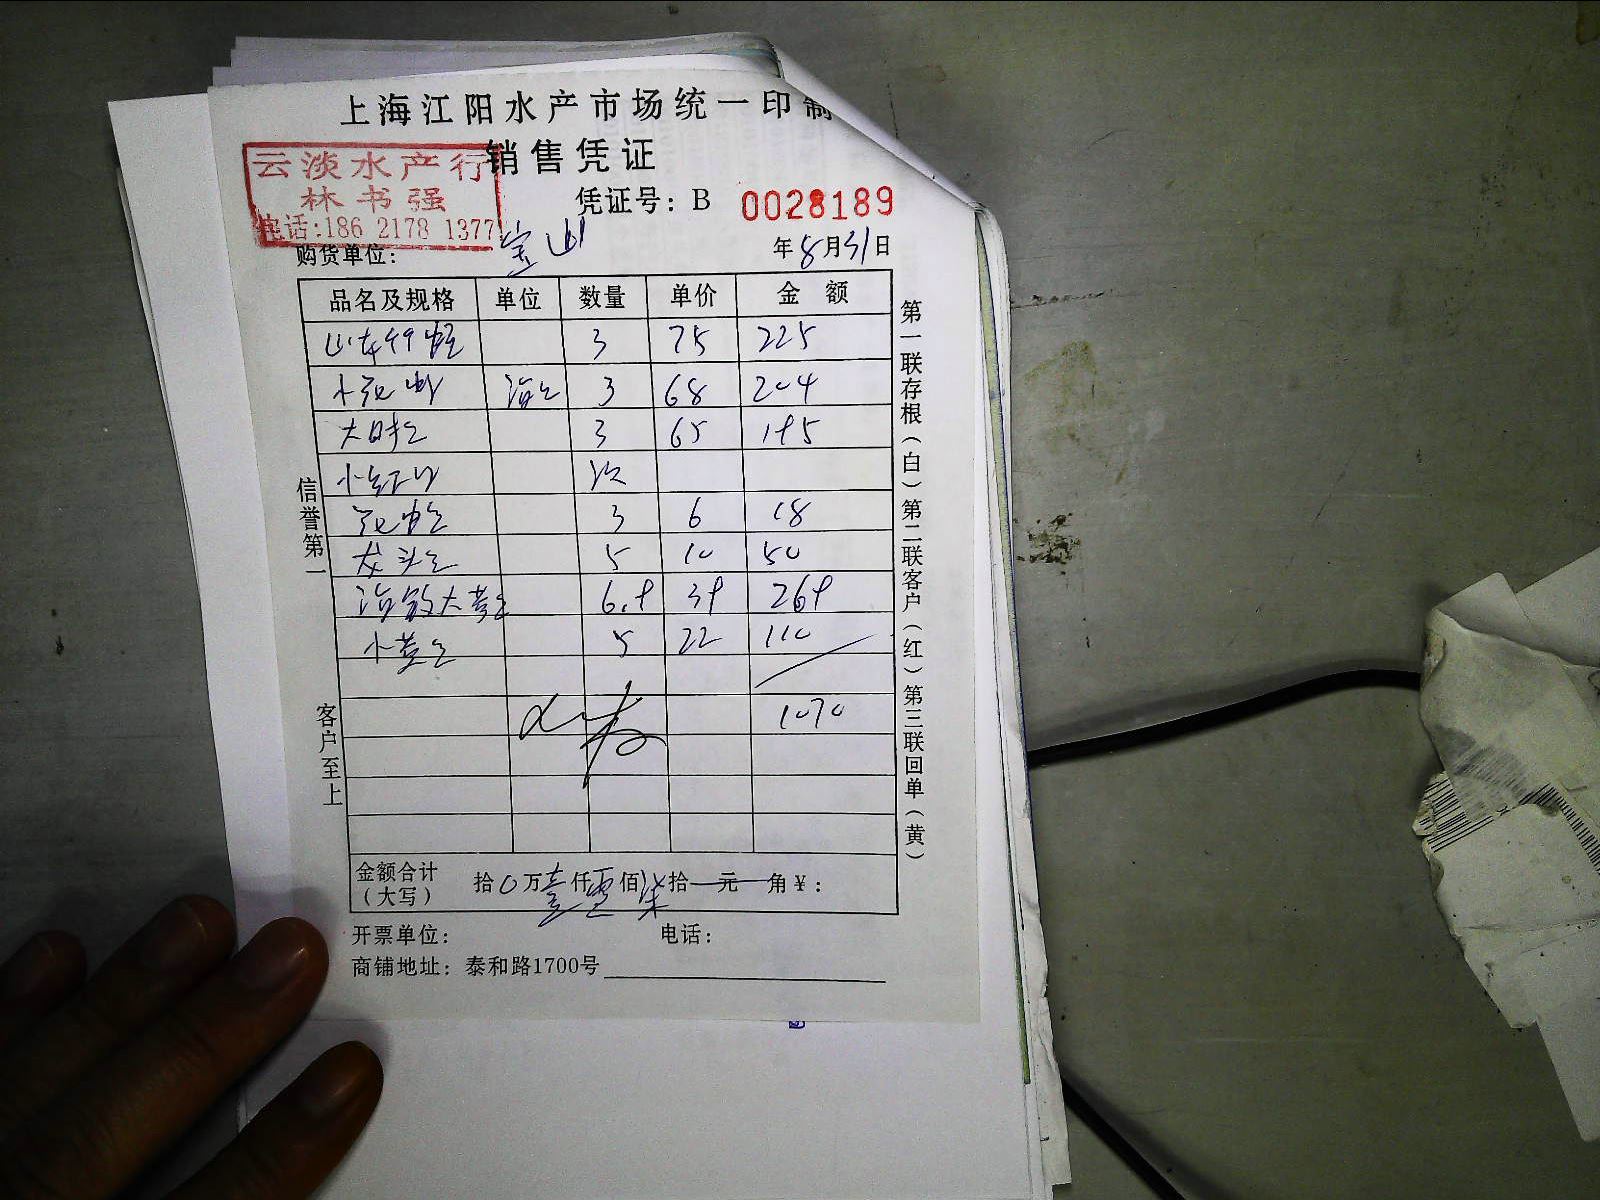 上海江阳水产市场统一印制
销售凭证
云淡水产行
林书强
电话:186 2178 1377
凭证号: B 0028189
购货单位: 宝山 年8月31日
品名及规格 单位 数量 单价 金 额
3 75 225
3 68 204
3 65 195
小红
3 6 18
龙头 5 10 50
6.9 39 269
小黄 5 22 110
1070
金额合计(大写) 拾0万壹仟零佰柒拾一元一角¥:
开票单位: 电话:
商铺地址: 泰和路1700号
信誉第一
客户至上
第一联存根(白) 第二联客户(红) 第三联回单(黄)